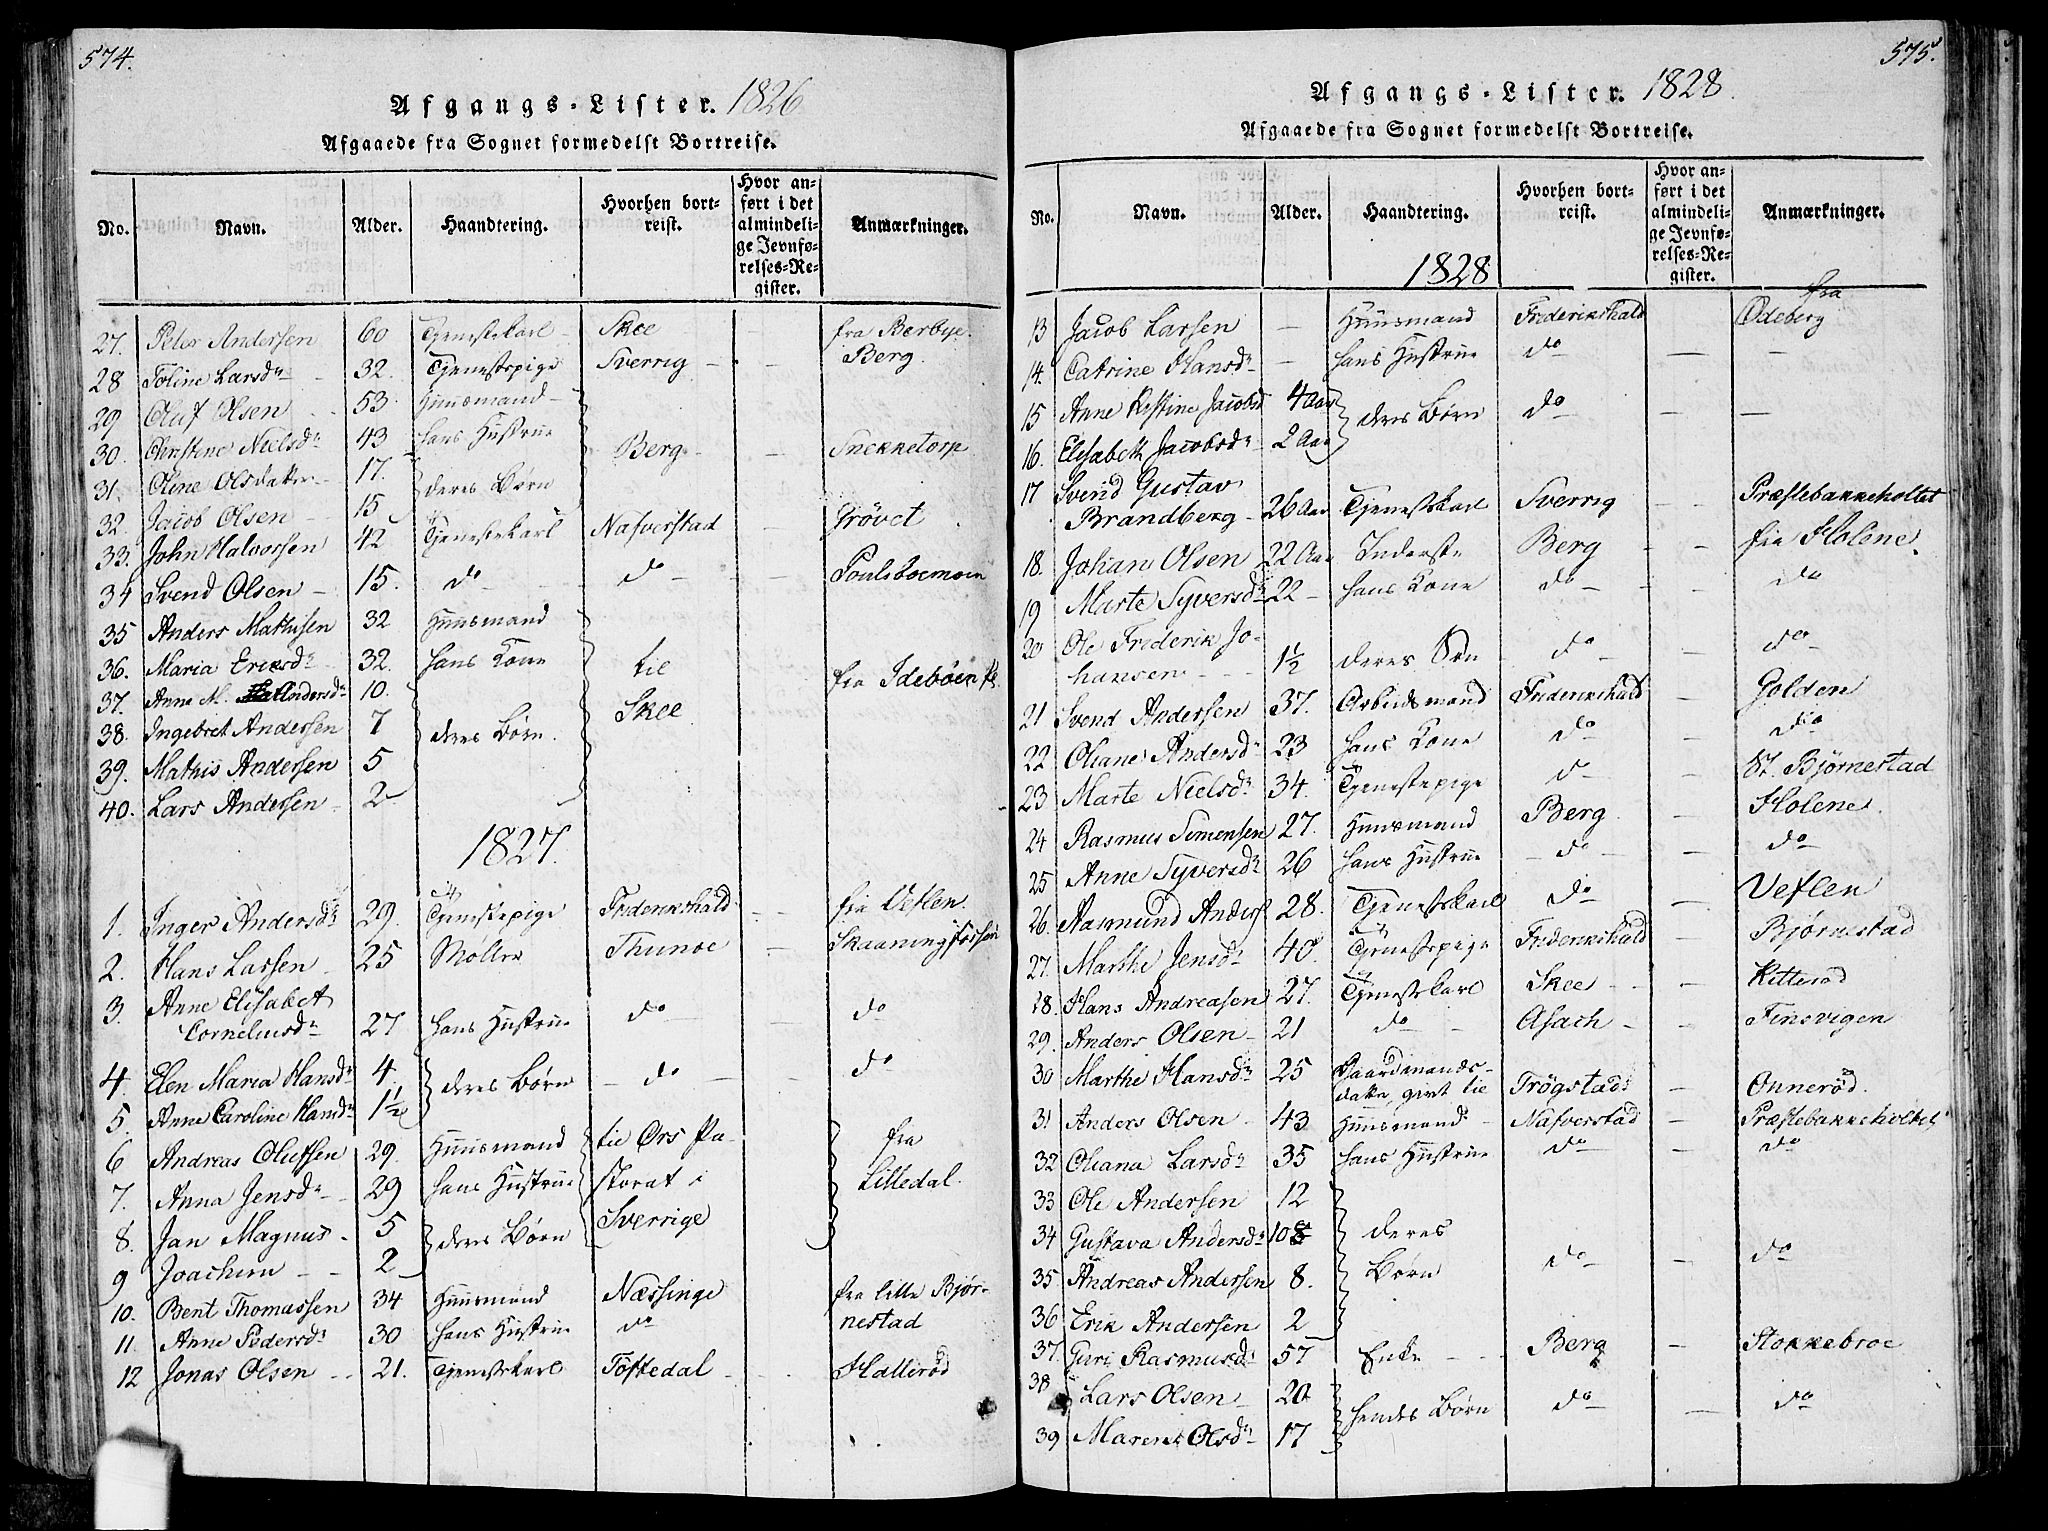 574.
Afgangs-Lister. 1826
Afgaaede fra Sognet formedelst Bortreise.
No. | Navn. | Alder. | Haandtering. | Hvorhen bortreist. | Hvor anført i det almindelige Jevnførelses-Register. | Anmærkninger.
27. Peter Andersen 60 Tjenestekarl Skee fra Berbye
28 Toline Larsdr 32. Tjenestepige Sverrig Berg
29 Oluf Olsen 53. Huusmand
30. Christine Nielsdr 43 hans Hustrue Berg Snekketorp
31. Oline Olsdatter 17. deres Børn
32. Jacob Olsen 15
33. John Halvorsen 42 Tjenestekarl Nafverstad Prøvet
34 Svend Olsen 15. do do Poulsboemoen
35 Anders Mathisen 32 Huusmand
36. Maria Eriksdr 32. hans Kone til fra Ideböen
37. Anne M. Andersdr 10.
38. Ingebret Andersen 7 deres Børn. Skee
39. Mathis Andersen 5
40. Lars Andersen 2
1827.
1. Inger Andersdr 29. Tjenestepige Friderikshald fra Veflen
2. Hans Larsen 25 Møller Thunøe Skaaningsfossen
3. Anne Elisabet
Corneliusdr 27 hans Hustrue do do
4 Elen Maria Hansdr 4 deres Børn do do
5. Anne Caroline Hansdr 1½
6 Andreas Olufsen 29. Huusmand til Ørs Pa- fra
7. Anna Jensdr 29 hans Hustrue storat i Lilledal.
8. Jan Magnus 5 deres Børn Sverrige
9 Joachim 2
10. Bent Thomassen 34 Huusmand Næssinge fra lille Bjør-
11. Anne Pedersdr 30 hans Hustrue do nestad
12 Jonas Olsen 21. Tjenestekarl Töftedal Hallerød
575.
Afgangs-Lister. 1828
Afgaaede fra Sognet formedelst Bortreise.
No. | Navn. | Alder. | Haandtering. | Hvorhen bortreist. | Hvor anført i det almindelige Jevnførelses-Register. | Anmærkninger.
1828
13 Jacob Larsen — Huusmand Frideriksthald fra Odeberg
14. Catrine Hansdr — hans Hustrue do —
15 Anne Kistine Jacobsd 4 Aar deres Børn do —
16. Elisabeth Jacobsdr 2 Aar
17 Svend Gustav
Brandberg 26 Aar Tjenestekarl Sverrig Præstebakkeholtet
18. Johan Olsen 22 Aar Inderste Berg fra Holene
19 Marte Syversdr 22 hans Kone do do
20 Ole Friderik Jo-
hansen 1½ deres Søn do do
21 Svend Andersen 37. Arbeidsmand Friderikshald Golden
22 Oliane Andersdr 23 hans Kone do do
23 Marte Nielsdr 34. Tjenestepige do St. Bjørnestad
24 Rasmus Simensen 27. Huusmand Berg Holene
25 Anne Syversdr 26 hans Hustrue do do
26. Aasmund Anders 28. Tjenestekarl do Veflen
27. Marthe Jensdr 40 Tjenestepige Friderikshald Bjørnestad
28. Hans Andreasen 27. Tjenestekarl Skee Kitterød
29. Anders Olsen 21 do Asach Finsvigen
30 Marthe Hansdr 25 Gaardmands-
datter, givt til Trögstad Onnerød.
31 Anders Olsen 43 Huusmand Nafverstad Præstebakkeholtet
32 Oliana Larsdr 35 hans Hustrue do do
33 Ole Andersen 12
34 Gustava Andersdr 10 deres
35 Andreas Andersen 8. Børn do do
36 Erik Andersen 2
37. Guri Rasmusdr 57 Enke Berg Stokkebroe
38 Lars Olsen 20 hendes Børn do do
39 Maren Olsdr 17